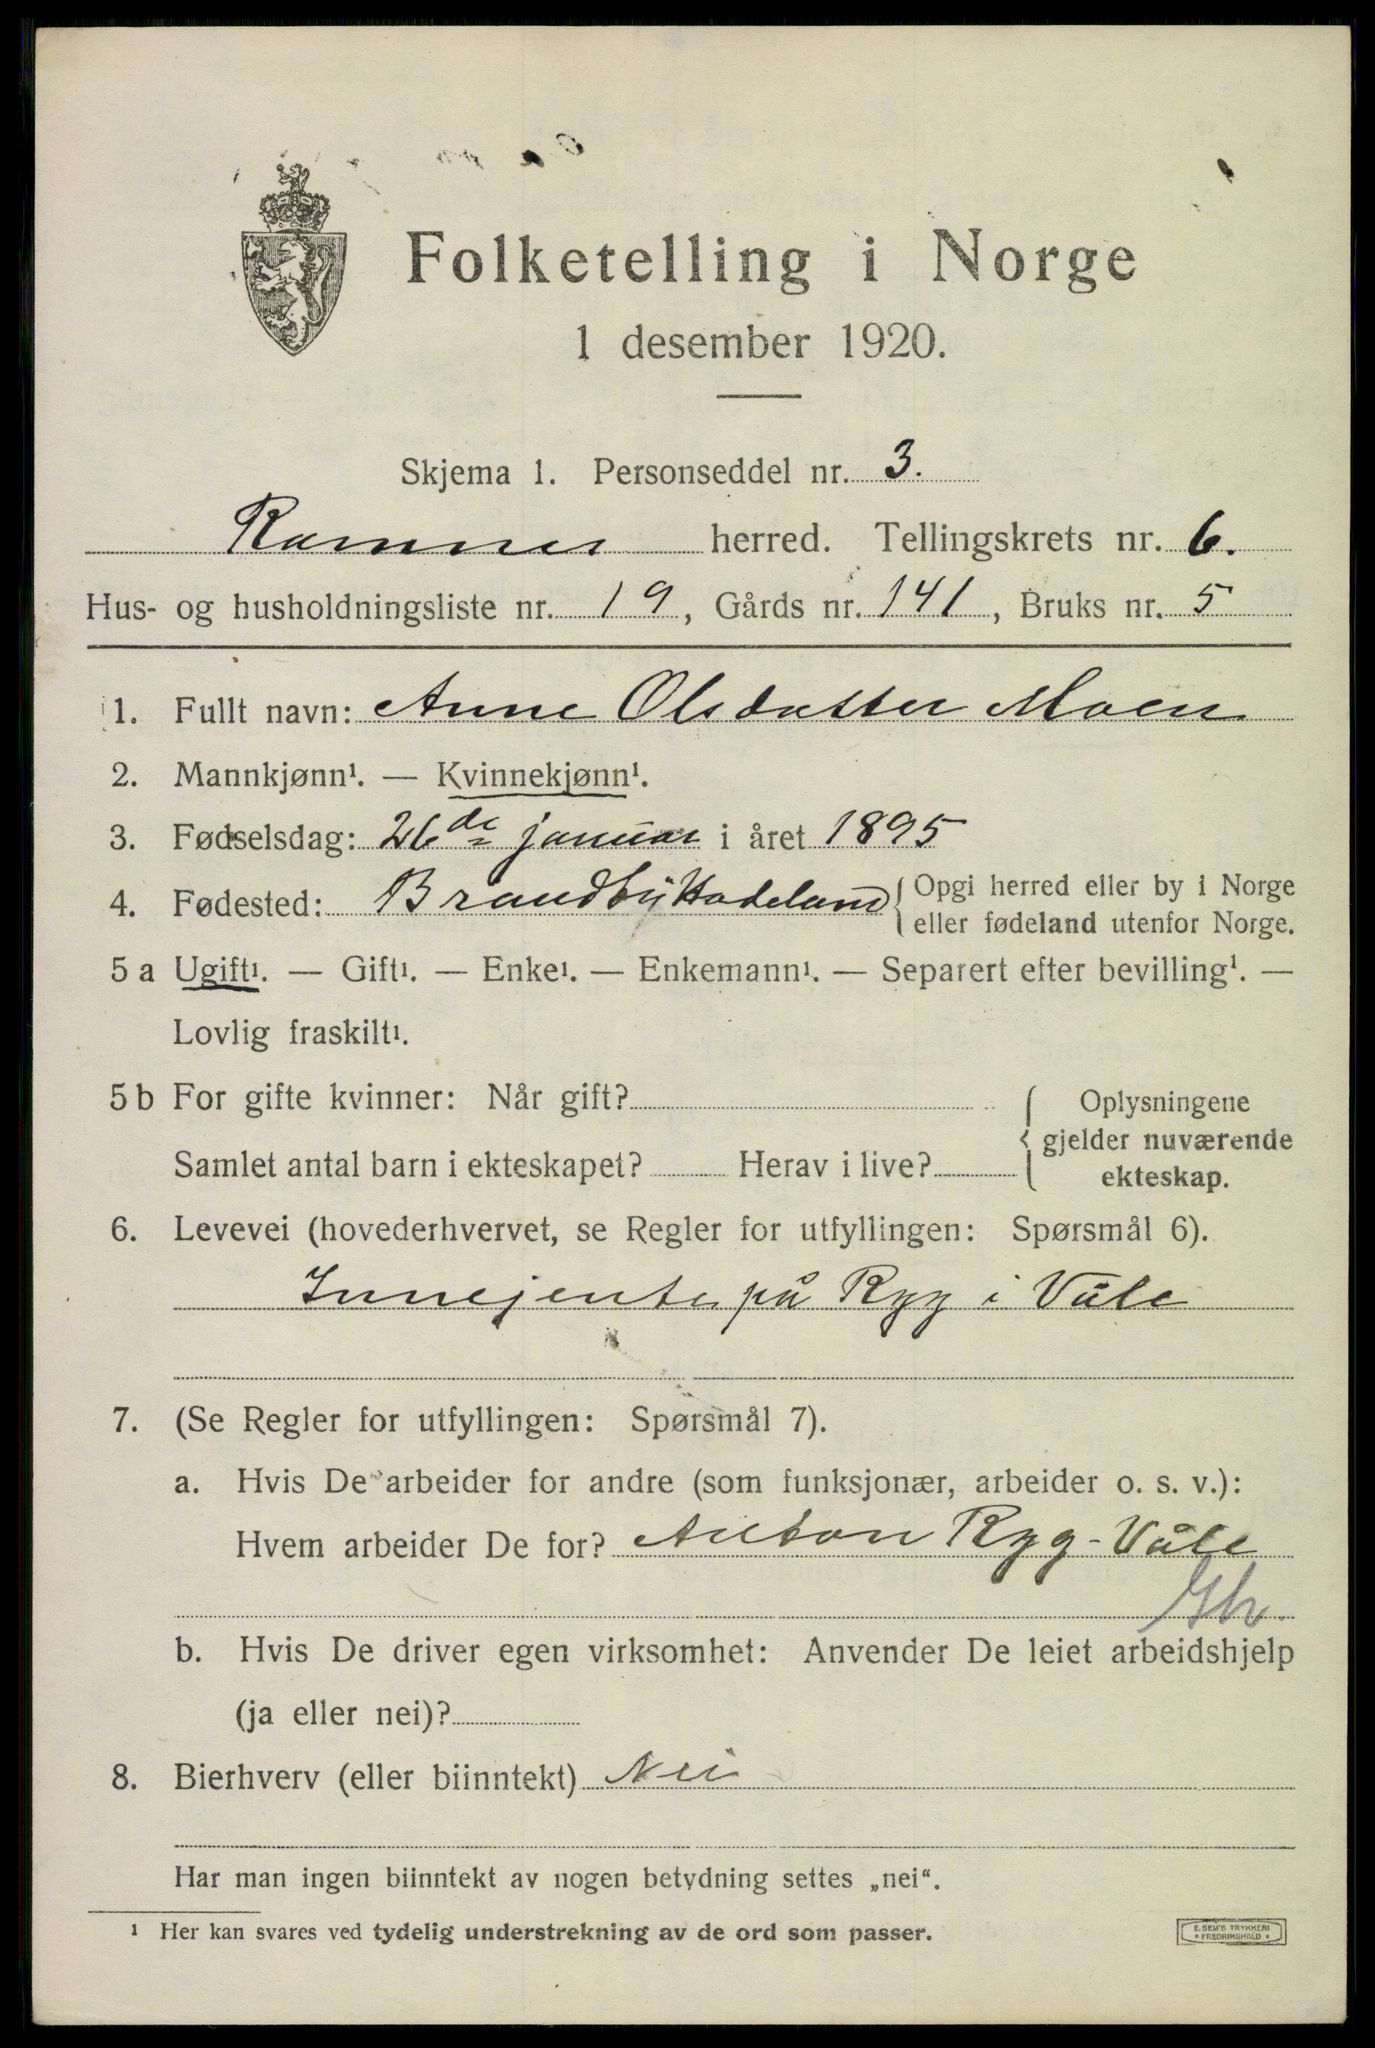 Folketelling i Norge
1 desember 1920.
Skjema 1. Personseddel nr. 3.
Ramnes herred. Tellingskrets nr. 6.
Hus- og husholdningsliste nr. 19, Gårds nr. 141, Bruks nr. 5
1. Fullt navn: Anne Olsdatter Moen
2. Mannkjønn¹. — Kvinnekjønn¹.
3. Fødselsdag: 26de januar i året 1895
4. Fødested: Brandbÿ Hadeland { Opgi herred eller by i Norge
eller fødeland utenfor Norge.
5 a Ugift¹. — Gift¹. — Enke¹. — Enkemann¹. — Separert efter bevilling¹. —
Lovlig fraskilt¹.
5 b For gifte kvinner: Når gift?
Samlet antal barn i ekteskapet? Herav i live?
{ Oplysningene
gjelder nuværende
ekteskap.
6. Levevei (hovederhvervet, se Regler for utfyllingen: Spørsmål 6).
Innejente på Ryg i Våle
7. (Se Regler for utfyllingen: Spørsmål 7).
a. Hvis De arbeider for andre (som funksjonær, arbeider o. s. v.):
Hvem arbeider De for? Anton Ryg - Våle
b. Hvis De driver egen virksomhet: Anvender De leiet arbeidshjelp
(ja eller nei)?
8. Bierhverv (eller biinntekt) Nei
Har man ingen biinntekt av nogen betydning settes „nei“.
¹ Her kan svares ved tydelig understrekning av de ord som passer.
E. SEM'S TRYKKERI
FREDRIKSHALD